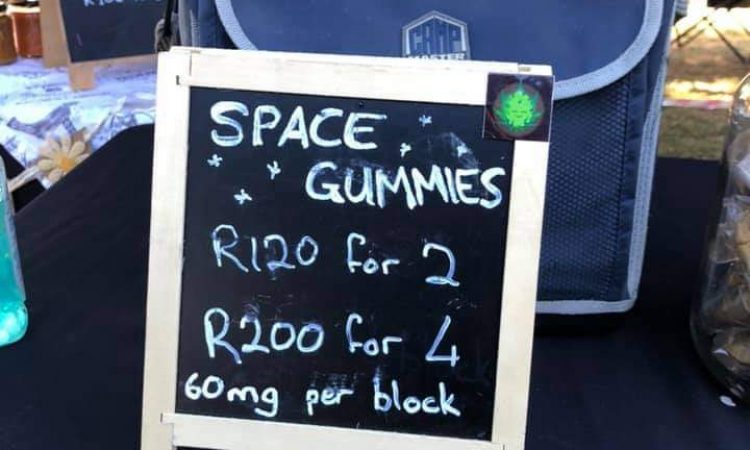 CAMP
MASTER
SPACE
GUMMIES
R120 for 2
R200 for 4
60mg per block